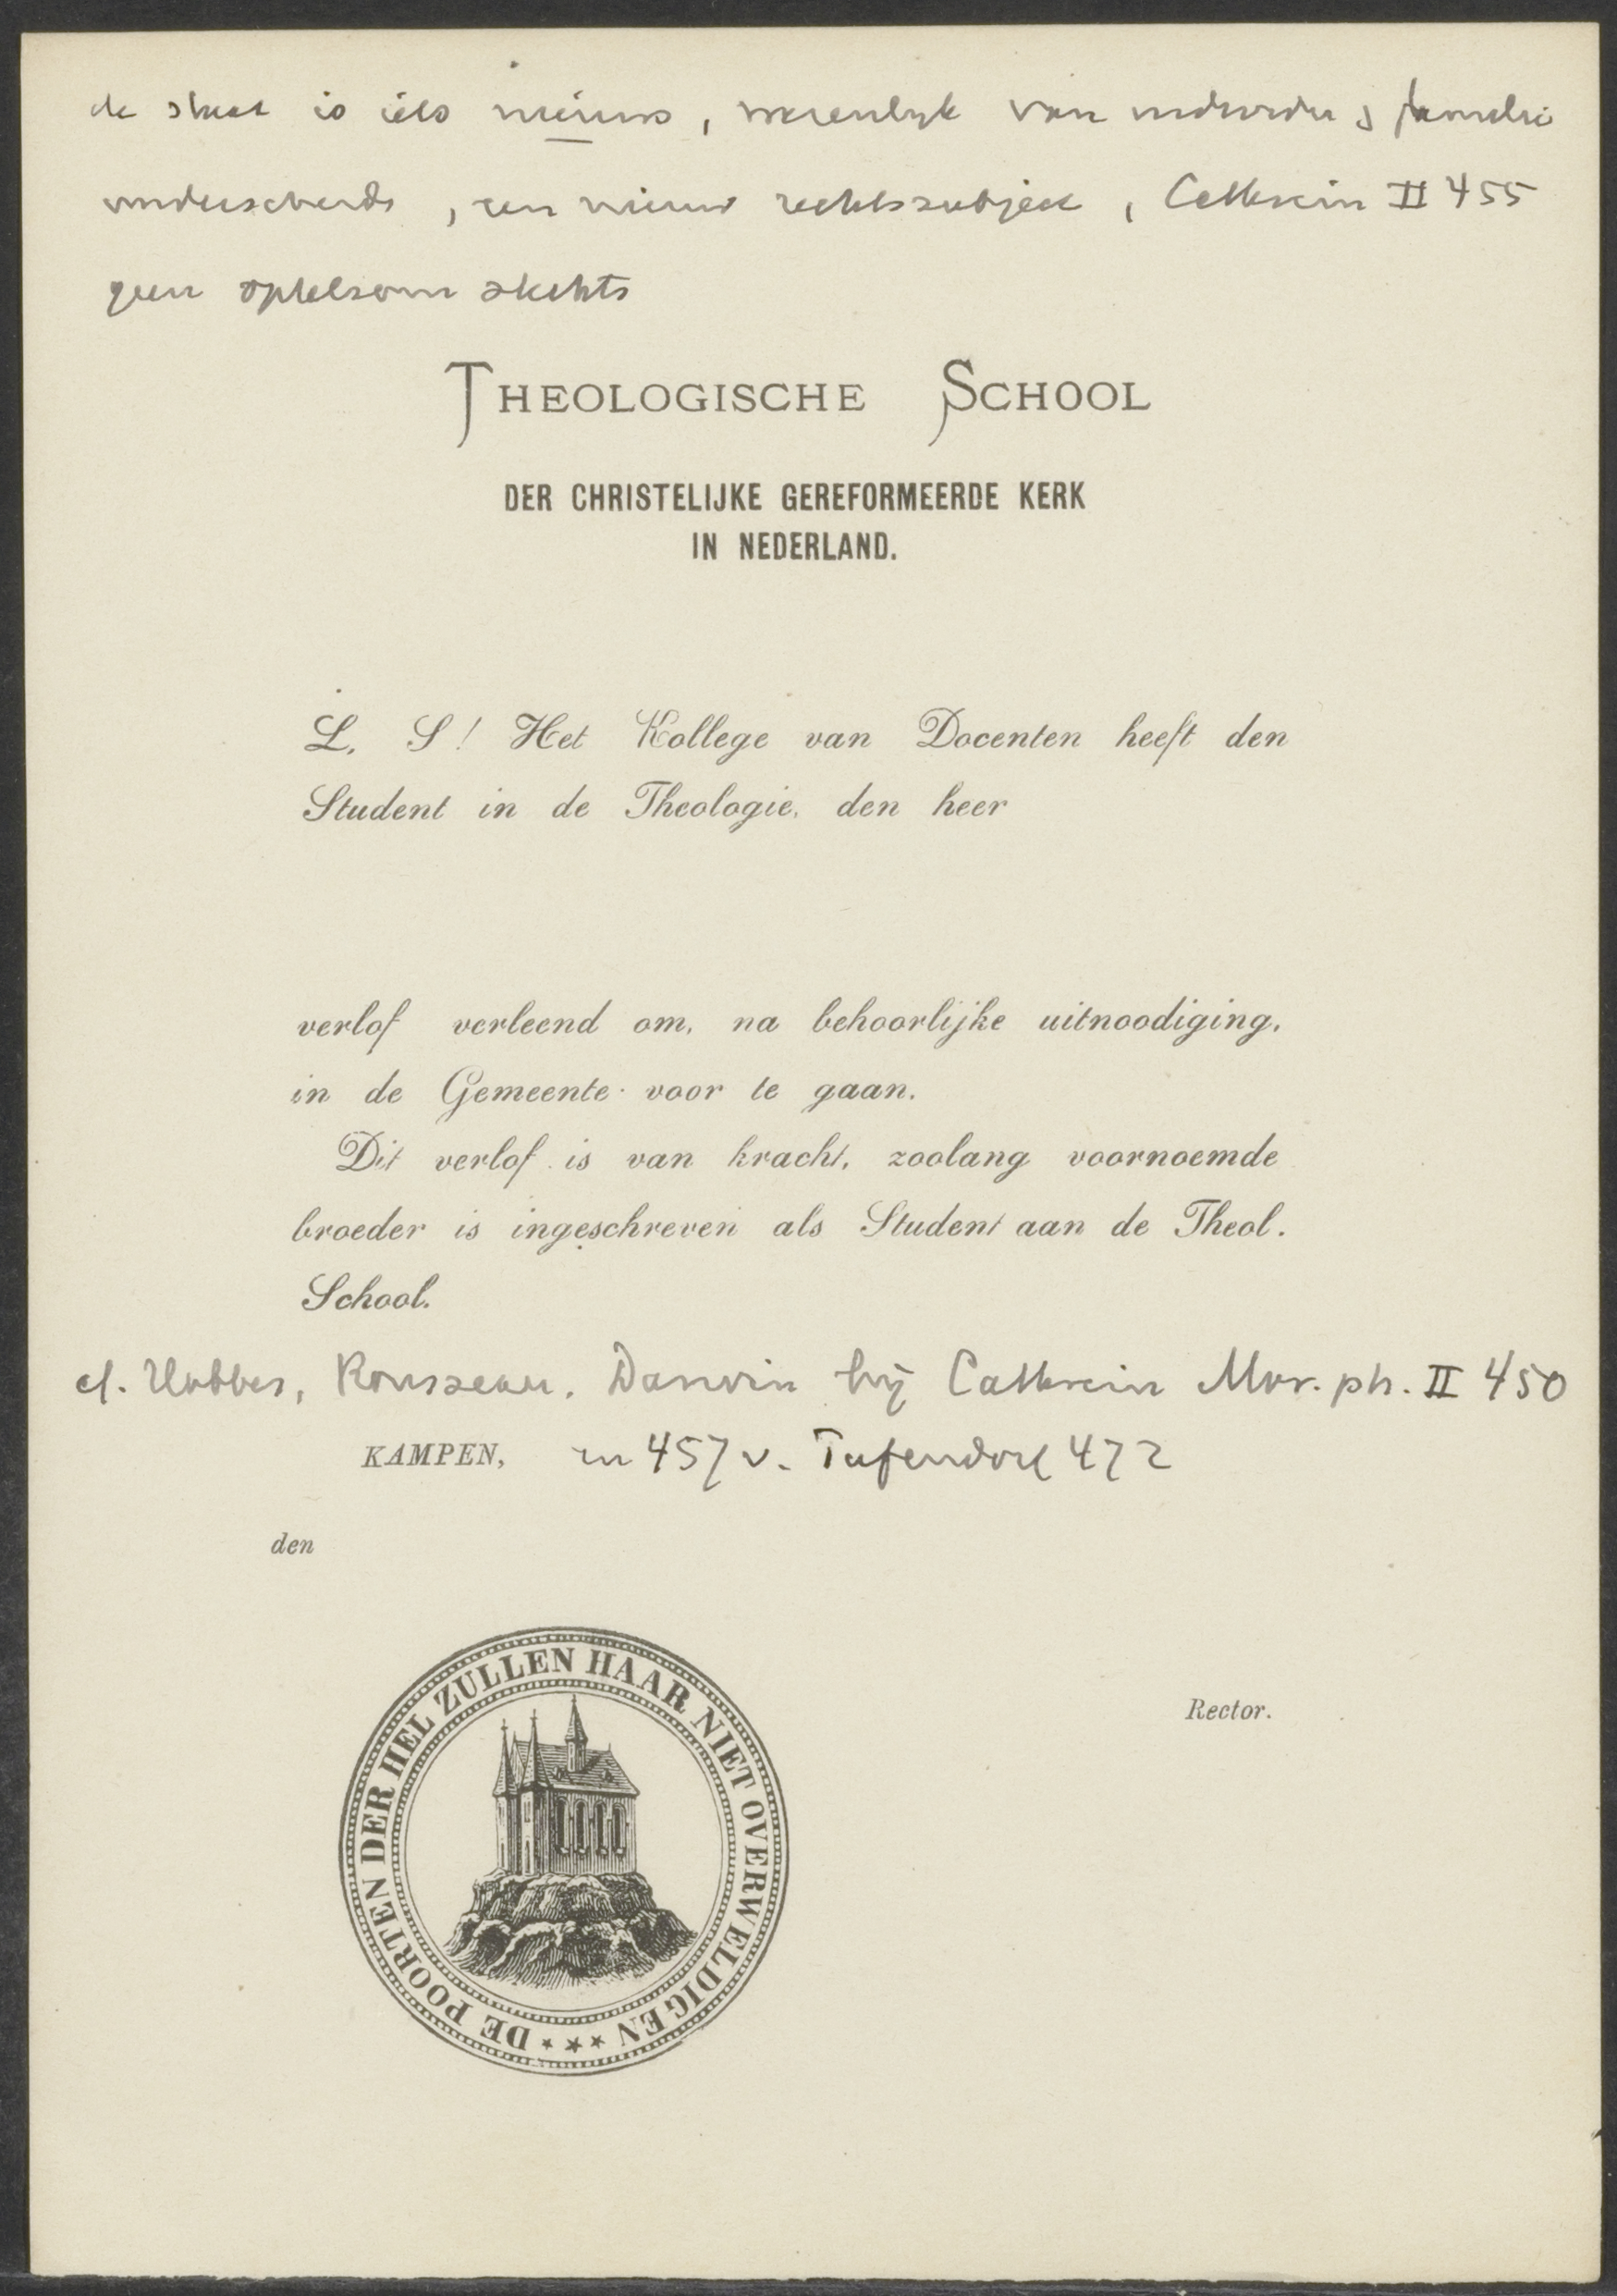 de staat is iets nieuws, wezenlijk van individu & familie
onderscheiden, een nieuw rechtssubjekt, Cathrein II 455
geen optelsom slechts
THEOLOGISCHE SCHOOL
DER CHRISTELIJKE GEREFORMEERDE KERK
IN NEDERLAND.
L. S! Het Kollege van Docenten heeft den
Student in de Theologie, den heer
verlof verleend om, na behoorlijke uitnoodiging,
in de Gemeente voor te gaan.
Dit verlof is van kracht, zoolang voornoemde
broeder is ingeschreven als Student aan de Theol.
School.
cf. Hobbes, Rousseau, Darwin bij Cathrein Mor. ph. II 450
KAMPEN, en 457 v. Pufendorf 472
den
Rector.
DE POORTEN DER HEL ZULLEN HAAR NIET OVERWELDIGEN